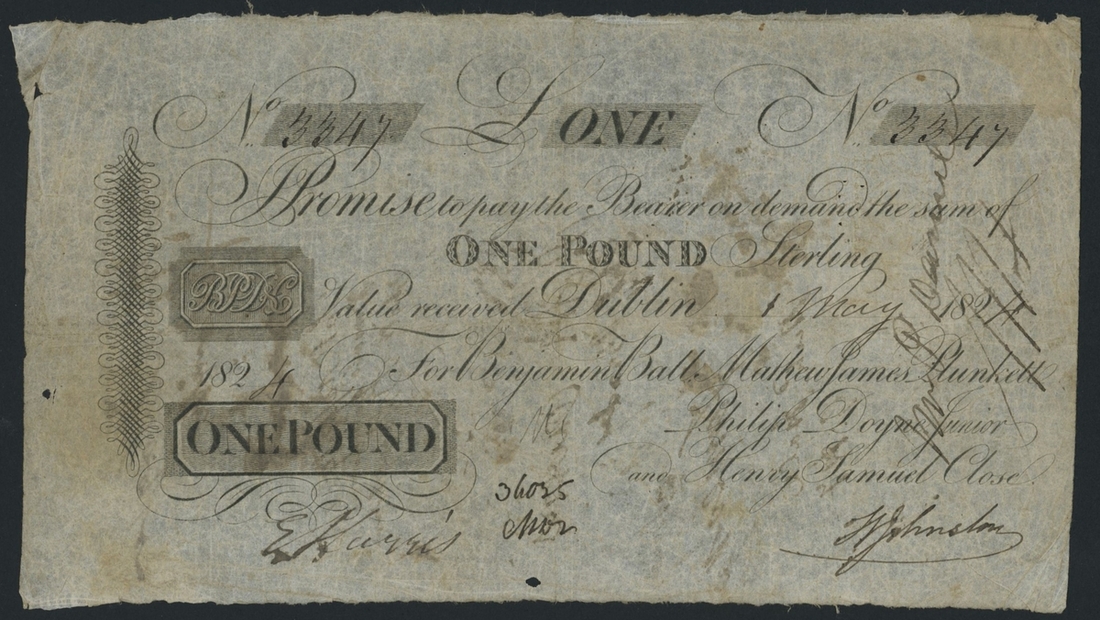 No. 3347 £ ONE No. 3347
I Promise to pay the Bearer on demand the sum of
ONE POUND Sterling
BPD&C Value received Dublin 1 May 1824
1824 For Benjamin Ball, Mathew James Plunkett
ONE POUND Philip Doyne Junior
and Henry Samuel Close.
36035
E Harris H Johnston